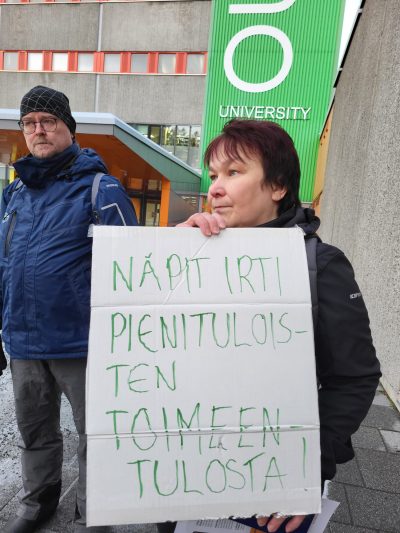 OU
UNIVERSITY
NÄPIT IRTI
PIENITULOIS-
TEN
TOIMEEN-
TULOSTA!